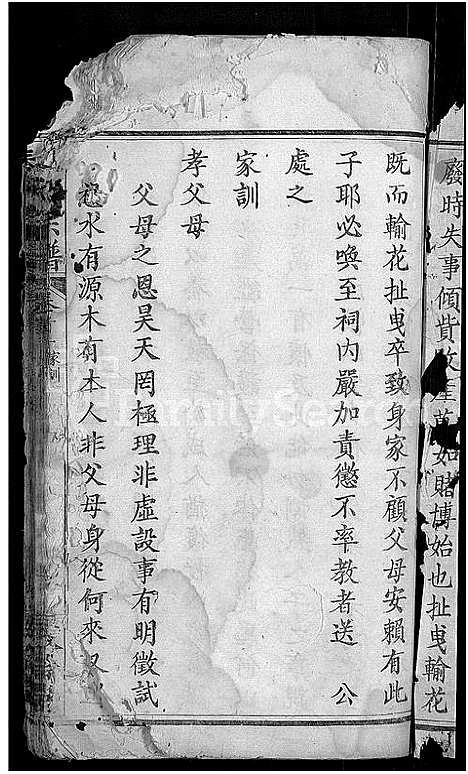 廢時失事傾貲敗產莫如賭博始也扯曳輸花
既而輸花扯曳卒致身家不顧父母安賴有此
子耶必喚至祠內嚴加責懲不率教者送　公
處之
家訓
孝父母
父母之恩昊天罔極理非虛設事有明徵試
水有源木有本人非父母身從何來
宗譜
FamilySearch